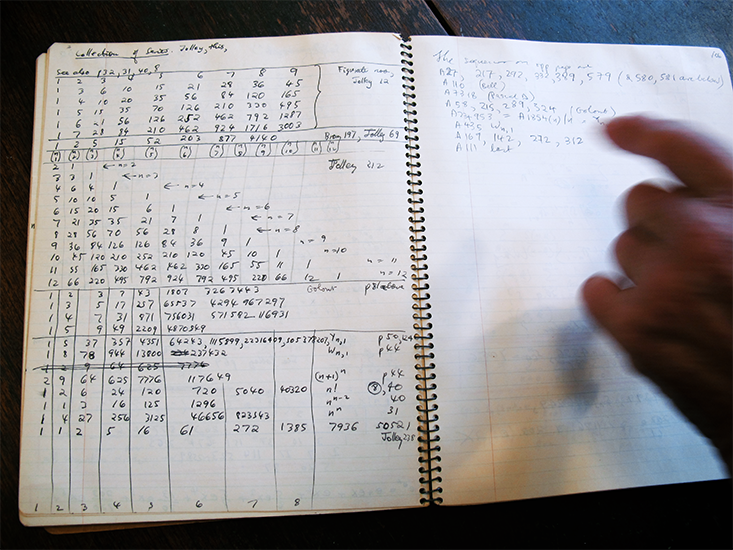 Collection of Series. Jolley, this,
See also p32, 31, 40, 8
1 2 3 4 5 6 7 8 9
1 3 6 10 15 21 28 36 45 Figurate nos,
1 4 10 20 35 56 84 120 165 Jolley 12
1 5 15 35 70 126 210 330 495
1 6 56 126 252 462 792 1287
1 7 28 84 210 462 924 1716 3003
1 2 5 15 52 203 877 4140 197, Jolley 69
2 1 ← n=2 Jolley 212
3 3 1 ← n=3
4 6 4 1 ← n=4
5 10 10 5 1 ← n=5
6 15 20 15 6 1 ← n=6
7 21 35 35 21 7 1 ← n=7
8 28 56 70 56 28 8 1 ← n=8
9 36 84 126 126 84 36 9 1 n=9
10 45 120 210 252 210 120 45 10 1 n=10
11 55 165 330 462 462 330 165 55 11 1 n=11
12 66 220 495 792 924 792 495 220 66 12 1 n=12
1 2 3 7 43 1807 3263443 Golomb
1 3 5 17 257 65537 4294967297
1 4 7 31 871 756031
1 5 9 49 2209 4870849
1 5 37 357 4351 64243, 1115899, p50,
1 8 78 944 13800 237432 Wn,1 p44
2 9 64 625 7776
2 9 64 625 7776 117649 (n+1)ⁿ p44
1 2 6 24 120 720 5040 40320 n! 40
1 1 3 16 125 1296 nⁿ⁻² 40
1 4 27 256 3125 46656 823543 nⁿ 31
1 1 2 5 16 61 272 1385 7936 50521
Jolley 238
1 2 3 4 5 6 7 8
The sequences on opp page are
217, 292, 389, 579 (A580, 581 are below)
A110 (Bell)
A7318 (Pascal Δ)
A58, 215, 289, 324 (Golomb)
A435 Wn,1
A169, 142, 272, 312
A111 last